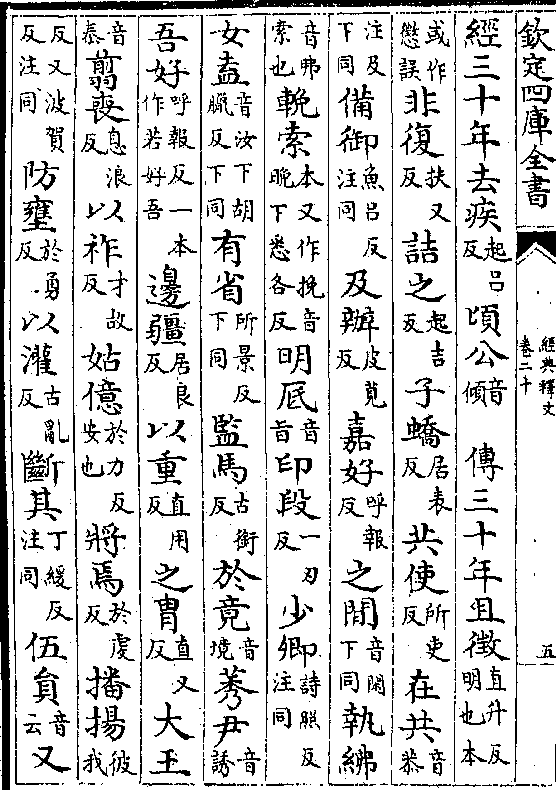 欽定四庫全書
經典釋文
卷二十
五
經三十年去疾起呂反頃公音傾傳三十年且徵直升反明也本
或作懲誤非復扶又反詰之起吉反子蟜居表反共使所吏反在共音恭
注及下同備御魚呂反注同及辦皮莧反嘉好呼報反之閒音閑下同執紼
音弗索也輓索本又作挽音晚下悉各反明厎音旨印段一刃反少卿詩照反注同
女盍音汝下胡臘反下同有省所景反下同監馬古銜反於竟音境莠尹音誘
吾好呼報反一本作若好吾邊疆居良反以重直用反之胄直又反大王
音泰翦喪息浪反以祚才故反姑億於力反安也將焉於虔反播揚彼我
反又波賀反注同防壅於勇反以灌古亂反斷其丁緩反注同伍員音云又